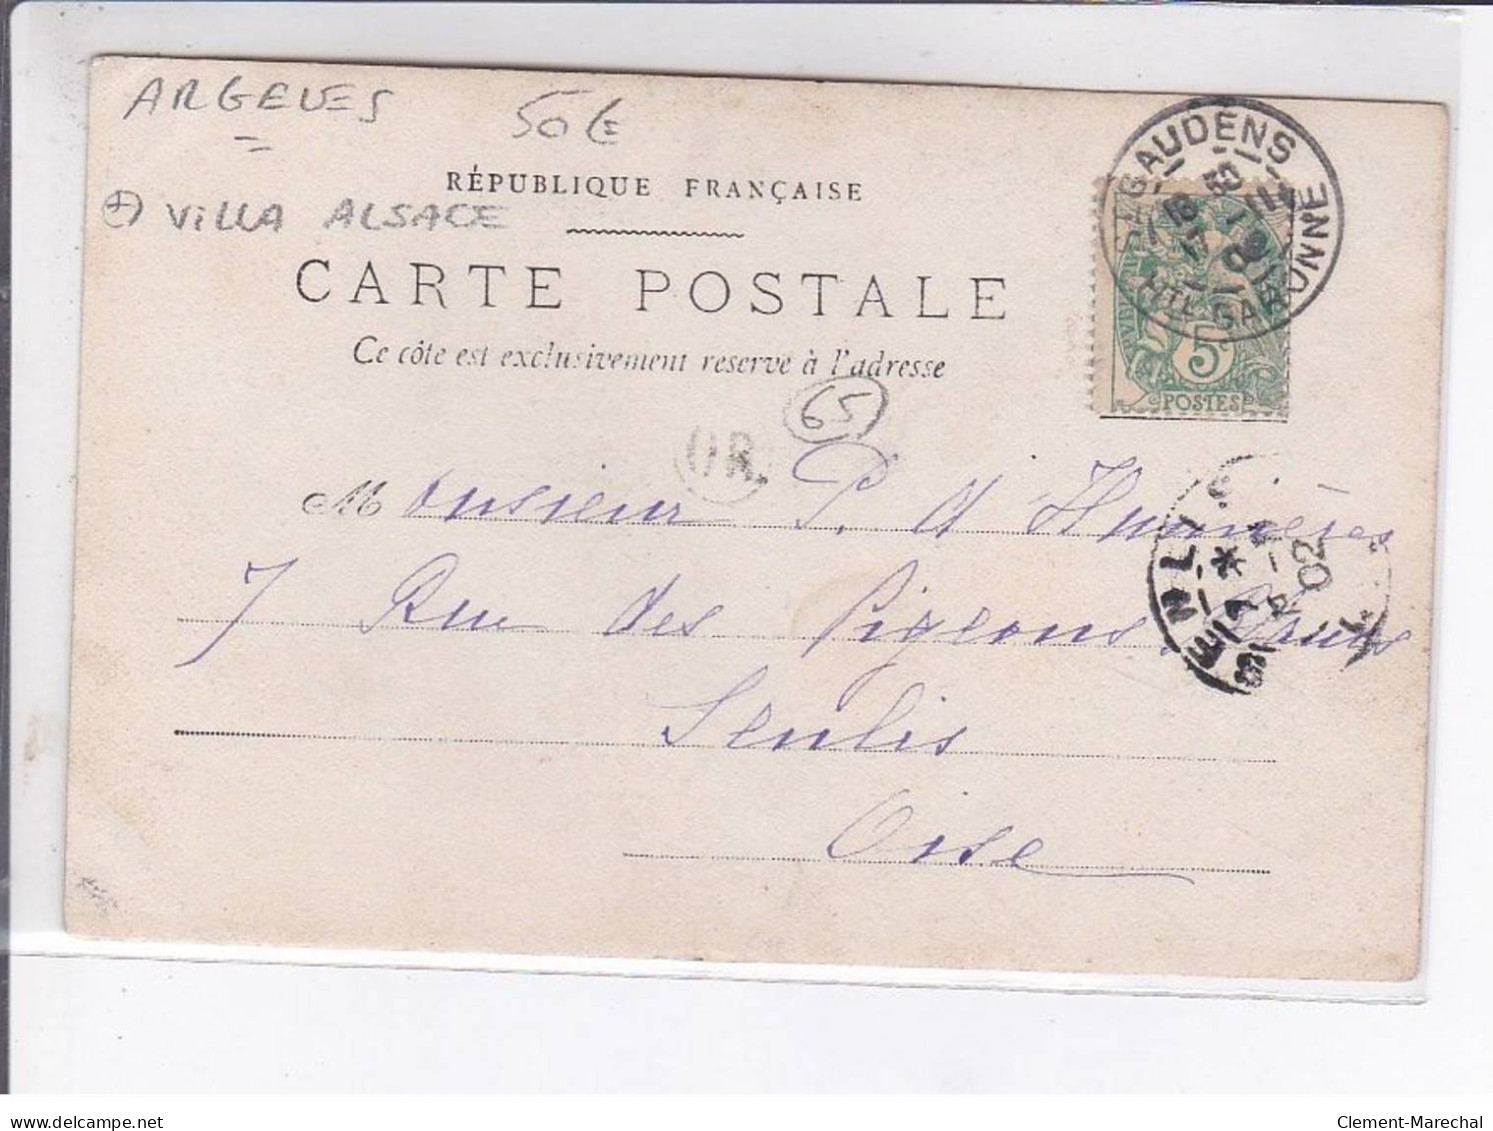 ARGELES
50 €
+ VILLA ALSACE
RÉPUBLIQUE FRANÇAISE
CARTE POSTALE
Ce côté est exclusivement réservé à l'adresse
65
OR
Monsieur P. d'Humières
7 Rue des Pigeons
Senlis
Oise
ST GAUDENS
HTE GARONNE
5c
POSTES
SENLIS
02
www.delcampe.net
Clement-Marechal